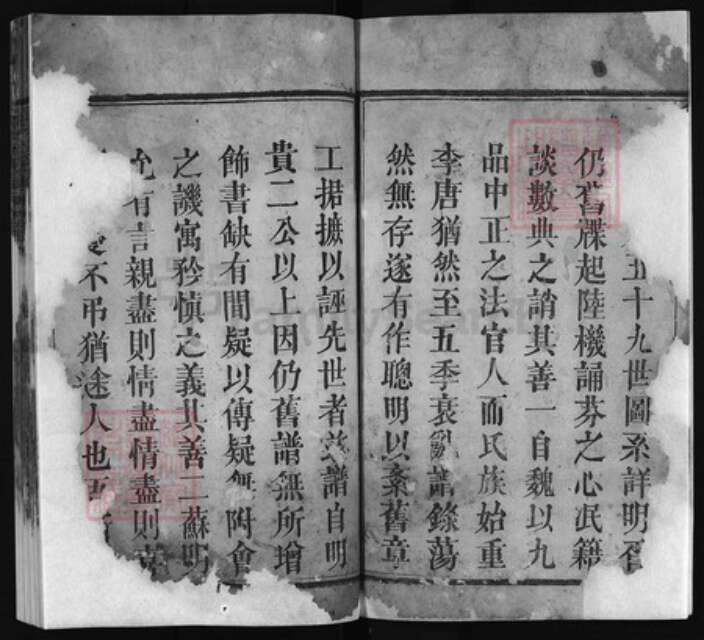 五十九世圖系詳明
仍舊牒起陸機誦芬之心泯籍
談數典之誚其善一自魏以九
品中正之法官人而氏族始重
李唐猶然至五季衰亂譜錄蕩
然無存遂有作聰明以紊舊章
工捃摭以誣先世者茲譜自明
貴二公以上因仍舊譜無所增
飾書缺有間疑以傳疑無附會
之譏寓矜慎之義其善二蘇明
允有言親盡則情盡情盡則
不弔猶途人也